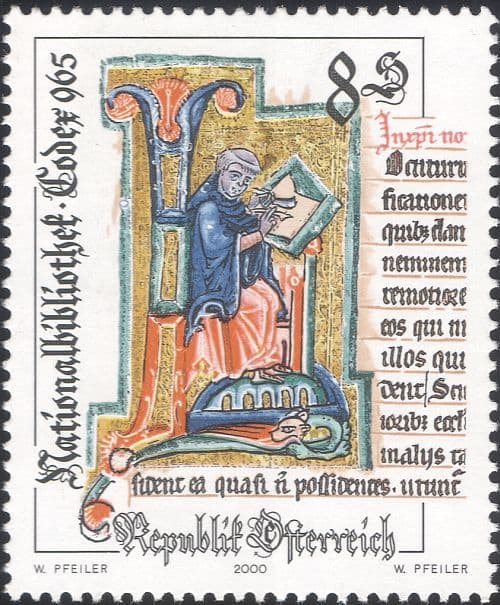 Nationalbibliothek · Codex 965
8 S
In xpi no
ficatione
quibz dam
neminem
remotiore
eos qui ni
illos qui
dent/ Scu
ioribz eccl
malys ta
sident ea quasi ñ possidentes. utunt̃
Republik Österreich
W. PFEILER 2000 W. PFEILER